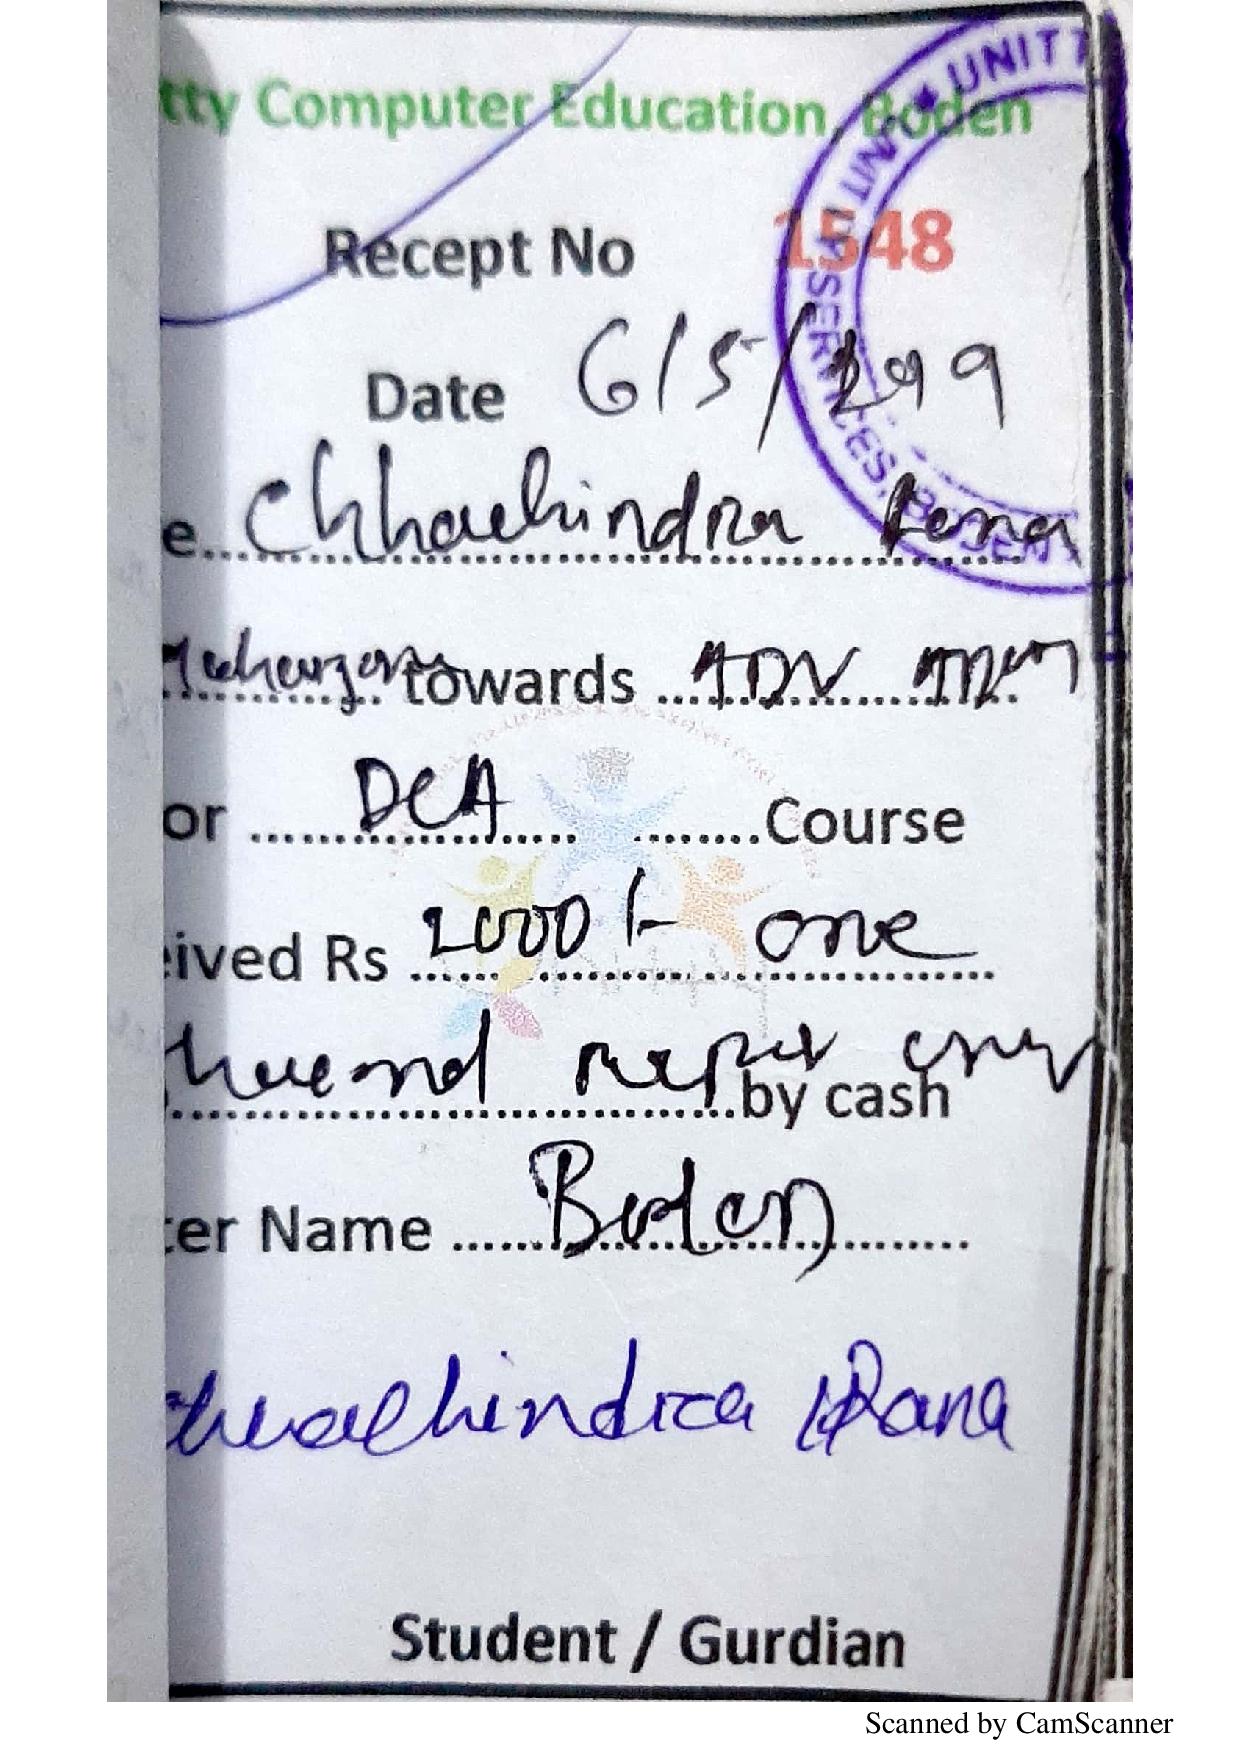 tty Computer Education, Boden
UNIT IT SERVICES, BODEN
Recept No 1548
Date 6/5/
e Chhachindra Rana
towards ADV
or DCA Course
ived Rs 2000/- one
by cash only
ter Name Boden
Chhachindra Rana
Student / Gurdian
Scanned by CamScanner